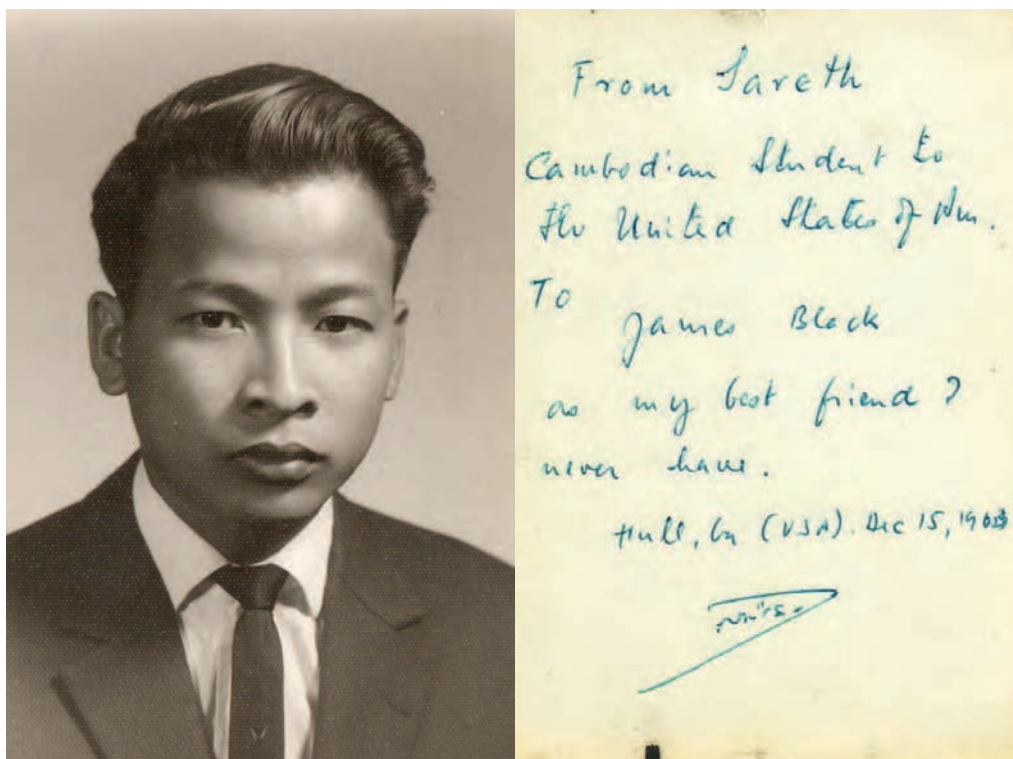 From Sareth
Cambodian Student to
the United States of Am.
To
James Black
as my best friend I
never have.
Hull, Ga (USA). Dec 15, 1963